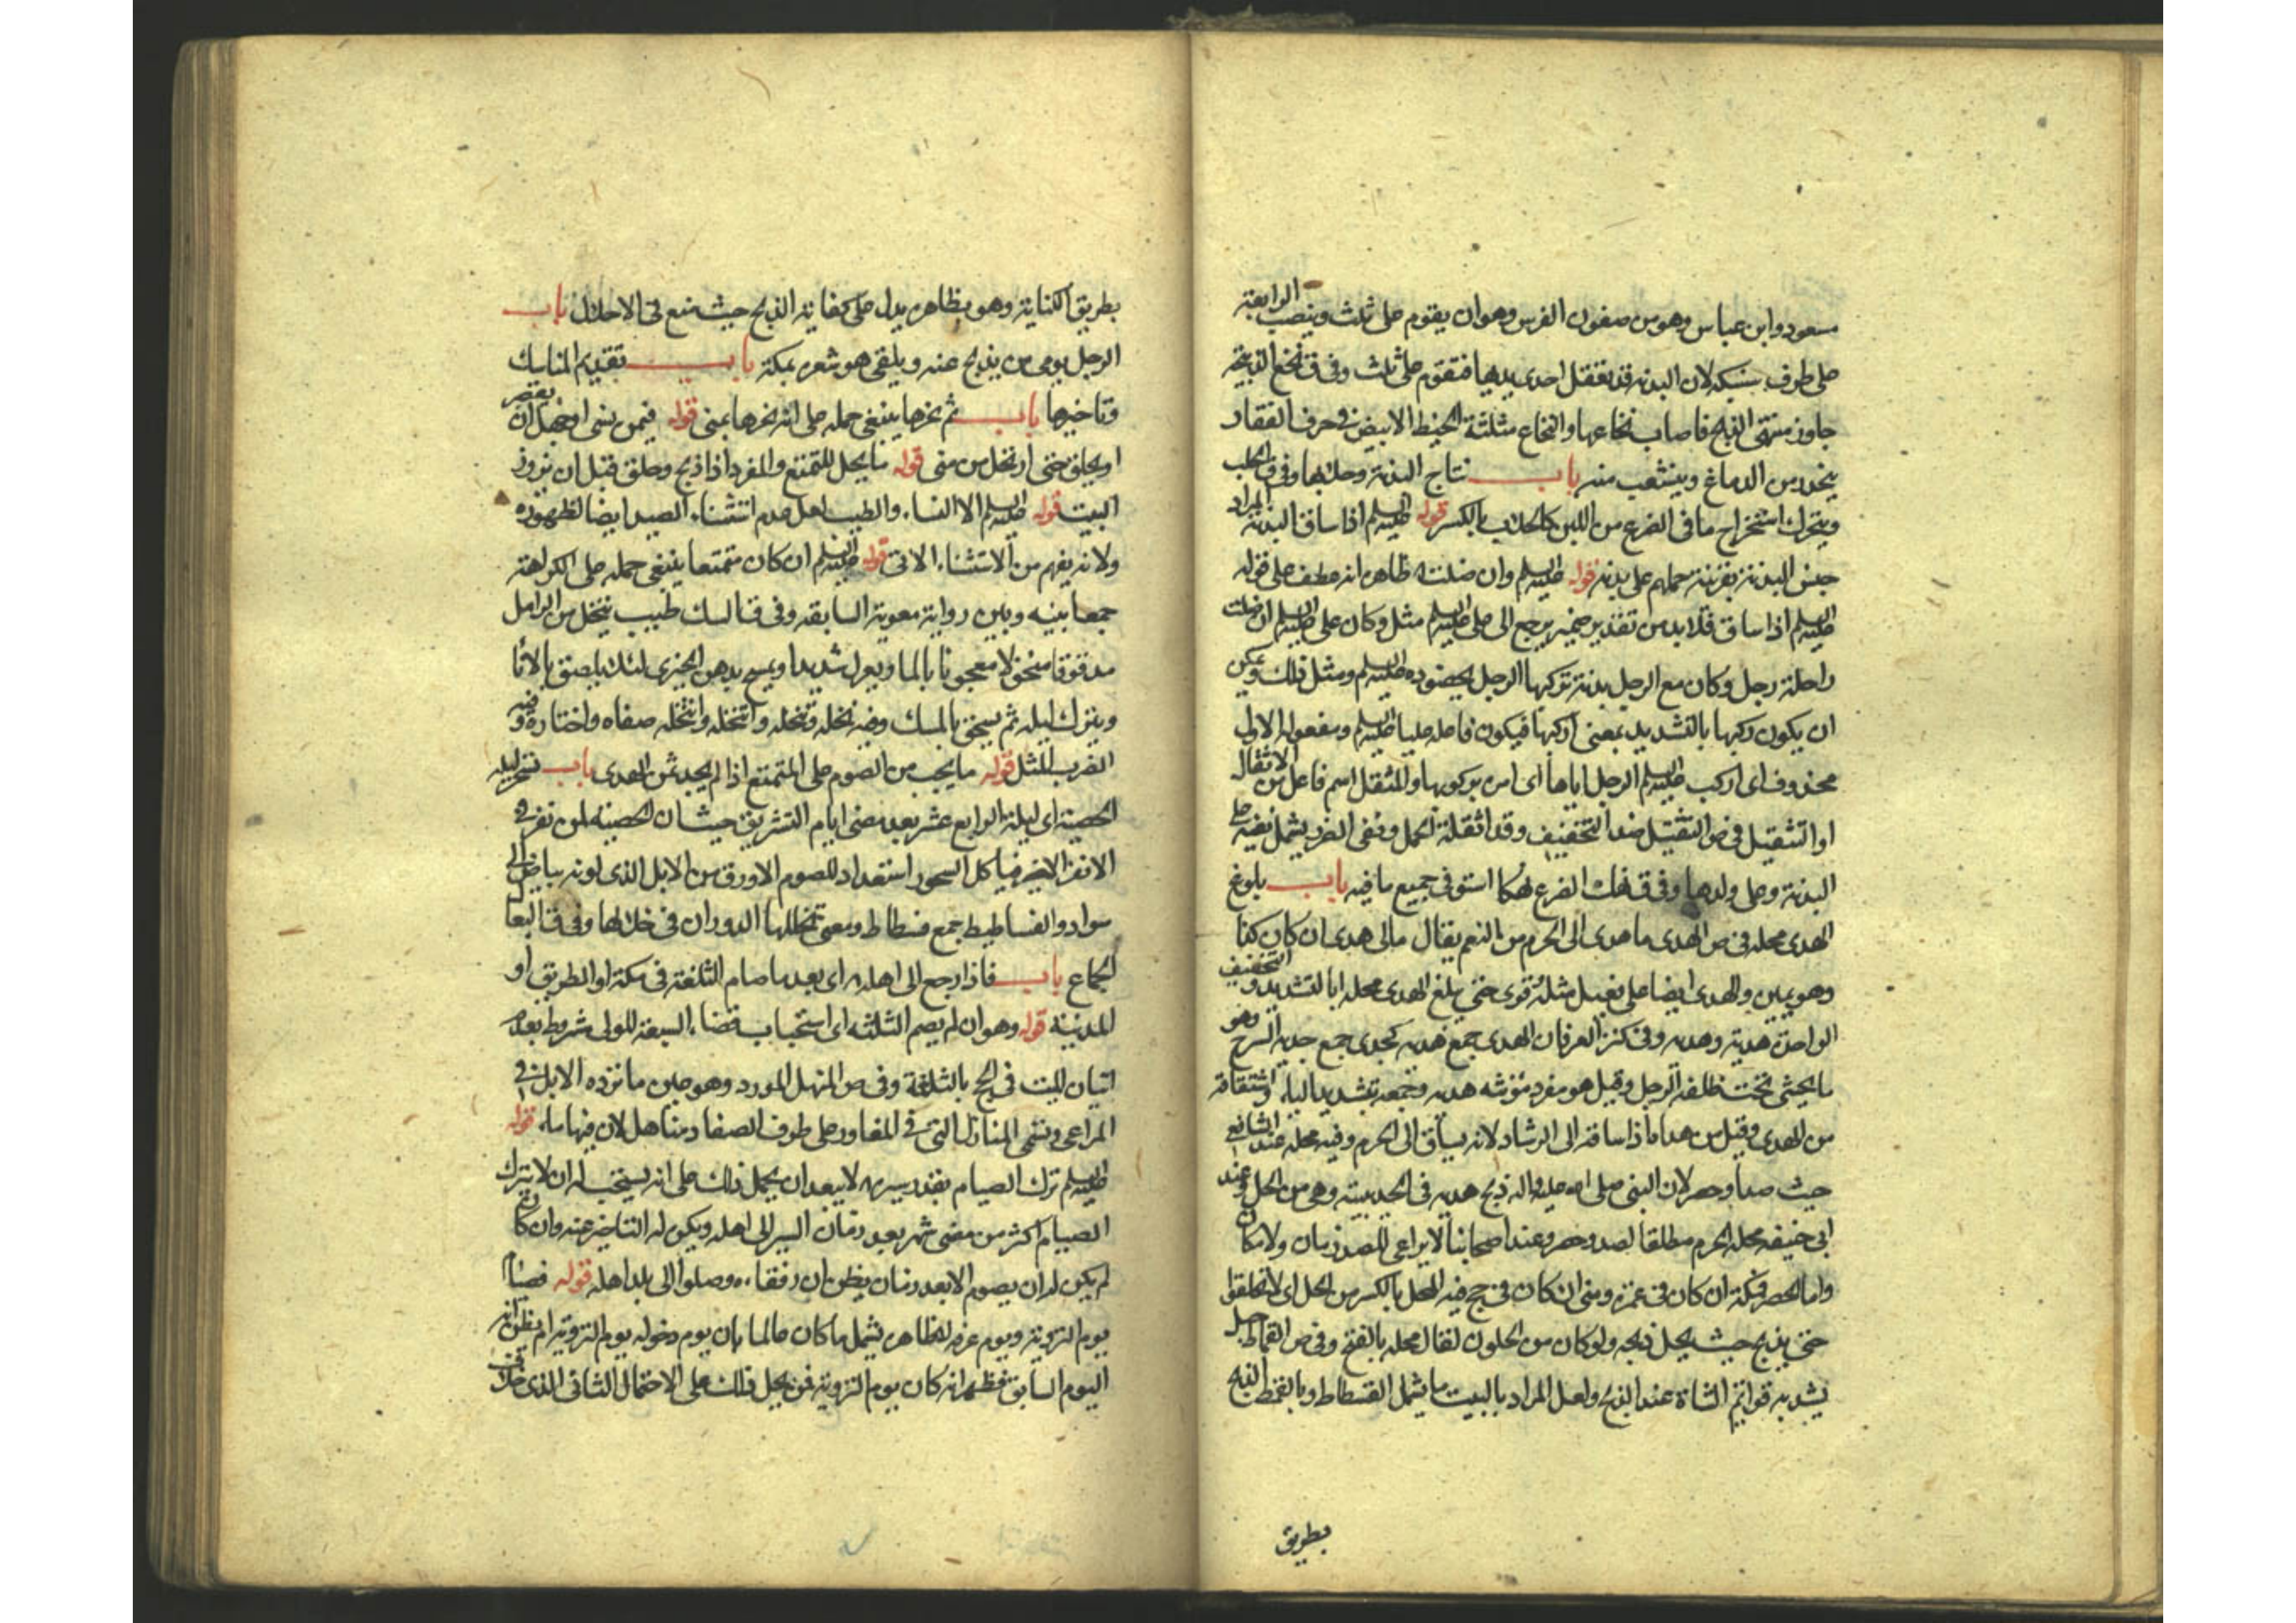 مسعود وابن عباس وهو من صفون الفرس وهو ان يقوم على ثلث وينصب الرابعة
على طرف سنبكه لان البدنه قد تعقل احدى يديها فتقوم على ثلث وفى ق نخع الذبيحة
جاوز منتهى الذبح فاصاب نخاعها والنخاع مثلثة الخيط الابيض فى جرف الفقار
ينحدر من الدماغ ويتشعب منه باب نتاج البدنة وحلبها وفى ق الحلب
ويحرك استخراج ما فى الضرع من اللبن كالحلاب بالكسر قوله عليه السلم اذا ساق البدنة المراد
جنس البدنة بقرينة حملهم على بدنه قوله عليه السلم وان ضلت ظاهره انه عطف على قوله
عليه السلم اذا ساق فلا بد من تقدير ضمير يرجع الى على عليه السلم مثل وكان على عليه السلم ان ضلت
راحلة رجل وكان مع الرجل بدنة تركبها الرجل بحضوره عليه السلم ومثل ذلك ويمكن
ان يكون ركبها بالتشديد بمعنى اركبها فيكون فاعله عليا عليه السلم ومفعوله الاول
محذوف اى اركب عليه السلم الرجل اياها اى امره بركوبها والمثقل اسم فاعل من الاثقال
او التثقيل فى ص التثقيل ضد التخفيف وقد اثقله الحمل ونفى الضرر يشمل نفيه على
البدنة وعلى ولدها وفى ق نهك الضرع نهكا استوفى جميع ما فيه باب بلوغ
الهدى محله فى ص الهدى ما هدى الى الحرم من النعم يقال مالى هدى ان كان كذا
وهو يمين والهدى ايضا على فعيل مثله قرى حتى يبلغ الهدى محله بالتشديد والتخفيف
الواحدة هدية وهديه وفى كنز العرفان الهدى جمع هديه كجدى جمع جديه السرج وهو
ما يحشى تحت ظلفه الرجل وقيل هو مفرد مؤنثه هديه وجمعه بتشديد الياء واشتقاقه
من الهديه وقيل من هداه اذا ساقه الى الرشاد لانه يساق الى الحرم وفيه محله عند الشافعى
حيث صد او حصر لان النبى صلى الله عليه واله ذبح هديه فى الحديبية وهى من الحل وعند
ابى حنيفه محله الحرم مطلقا لصد وحصر وعند اصحابنا لا يراعى للصد زمان ولا مكان
واما الحصر فمكة ان كان فى عمرة ومنى ان كان فى حج فيه المحل بالكسر من الحل اى لا تحلقوا
حتى يذبح حيث يحل ذبحه ولو كان من الحلول لقال محله بالفتح وفى ص القماط حبل
يشد به قوائم الشاة عند الذبح ولعل المراد بالبيت ما يشمل الفسطاط وبالقمط الذبح
بطريق
بطريق الكناية وهو بظاهره يدل على كفاية الذبح حيث منع فى الاحلال باب
الرجل يوصى من يذبح عنه ويلقى هو شعره بمكة باب تقديم المناسك
وتاخيرها باب ثم نحرها ينبغى حمله على انه نحرها بمنى قوله فيمن نسى او جهل ان يقصر
او يحلق حتى ارتحل من منى قوله ما يحل للمتمتع والمفرد اذا ذبح وحلق قبل ان يزور
البيت قوله عليه السلم الا النساء والطيب لعل عدم استثناء الصيد ايضا لظهوره
ولانه يفهم من الاستثناء الاتى قوله عليه السلم ان كان متمتعا ينبغى حمله على الكراهة
جمعا بينه وبين رواية معوية السابقه وفى ق السك طيب يتخذ من الرامك
مدقوقا منخولا معجونا بالماء ويعرك شديدا ويمسح بدهن الخيرى لئلا يلصق بالاناء
ويترك ليلة ثم يسحق المسك وفيه نخله وتنخله وانتخله صفاه واختاره وفيه
الضرب المثل قوله ما يجب من الصوم على المتمتع اذا لم يجد ثمن الهدى باب تسحر ليله
الحصبة اى ليلة الرابع عشر بعد مضى ايام التشريق حيث ان الحصبه لمن نفر فى
الاخير فياكل السحور استعدادا للصوم الاورق من الابل الذى لونه بياض الى
سواد والفساطيط جمع فسطاط ومعنى تخللها الدوران فى خلالها وفى ق البعال
الجماع باب فاذا رجع الى اهله اى بعد ما صام الثلثة فى مكة او الطريق او
المدينة قوله وهو ان لم يصم الثلثه اى استحباب قضاء السبعة للولى شريط بعدم
اتيان الميت فى الحج بالثلثة وفى ص المنهل المورد وهو عين ماء ترده الابل فى
المراعى وتسمى المنازل التى فى المفاوز على طرف الصفار مناهل لان فيها ماء قوله
عليه السلم ترك الصيام بقدر مسيره لا يبعد ان يحمل ذلك على انه يستحب له ان لا يترك
الصيام اكثر من مضى شهر بعد زمان السير الى اهله ويكون له التاخير عنه وان كان
لم يكن له ان يصوم الا بعد زمان يظن ان رفقاءه وصلوا الى بلد اهله قوله فصام
يوم التروية ويوم عرفه لظاهره يشمل ما كان عالما بان يوم دخوله يوم التروية ام يظن انه
اليوم السابق فظهر انه كان يوم التروية فمن يحمل ذلك على الاحتمال الثانى الذى خلاف